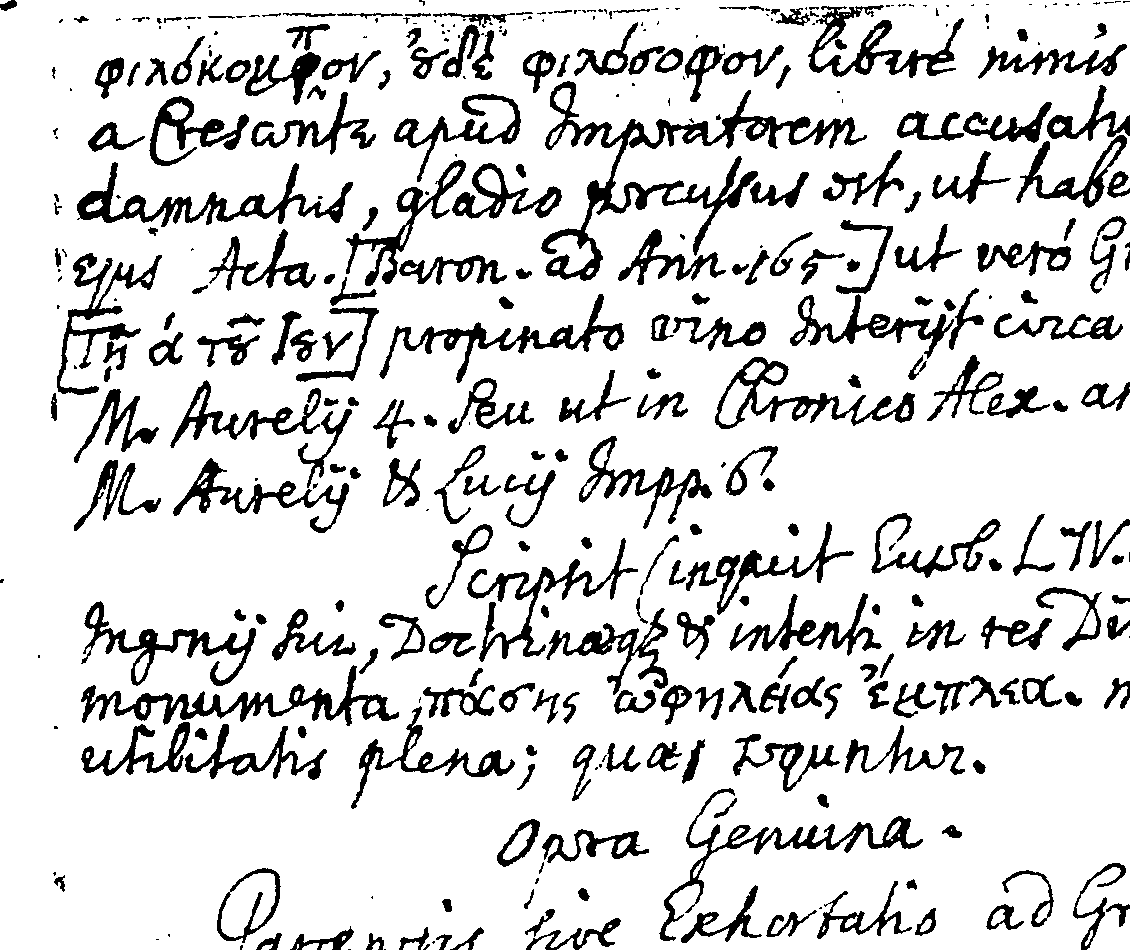 φιλόκομπον, ȣ̓δέ φιλόσοφον, liberé nimis
a Crescente apud Imperatorem accusatu
damnatus, gladio percussus est, ut habe
ejus Acta. [Baron. ad Ann. 165.] ut veró Gr
propinato vino Interijt circa
M. Aurelij 4. Seu ut in Chronico Alex. an
M. Aurelij & Lucij Impp. 6.
Scripsit (inquit Euseb. L IV.
Ingenij sui, Doctrinæq; & intenti in res Di
monumenta, πάσης ὠφηλείας ἔμπλεα. m
utilitatis plena; quæ sequuntur.
Opera Genuina.
Parænesis sive Exhortatio ad Gr